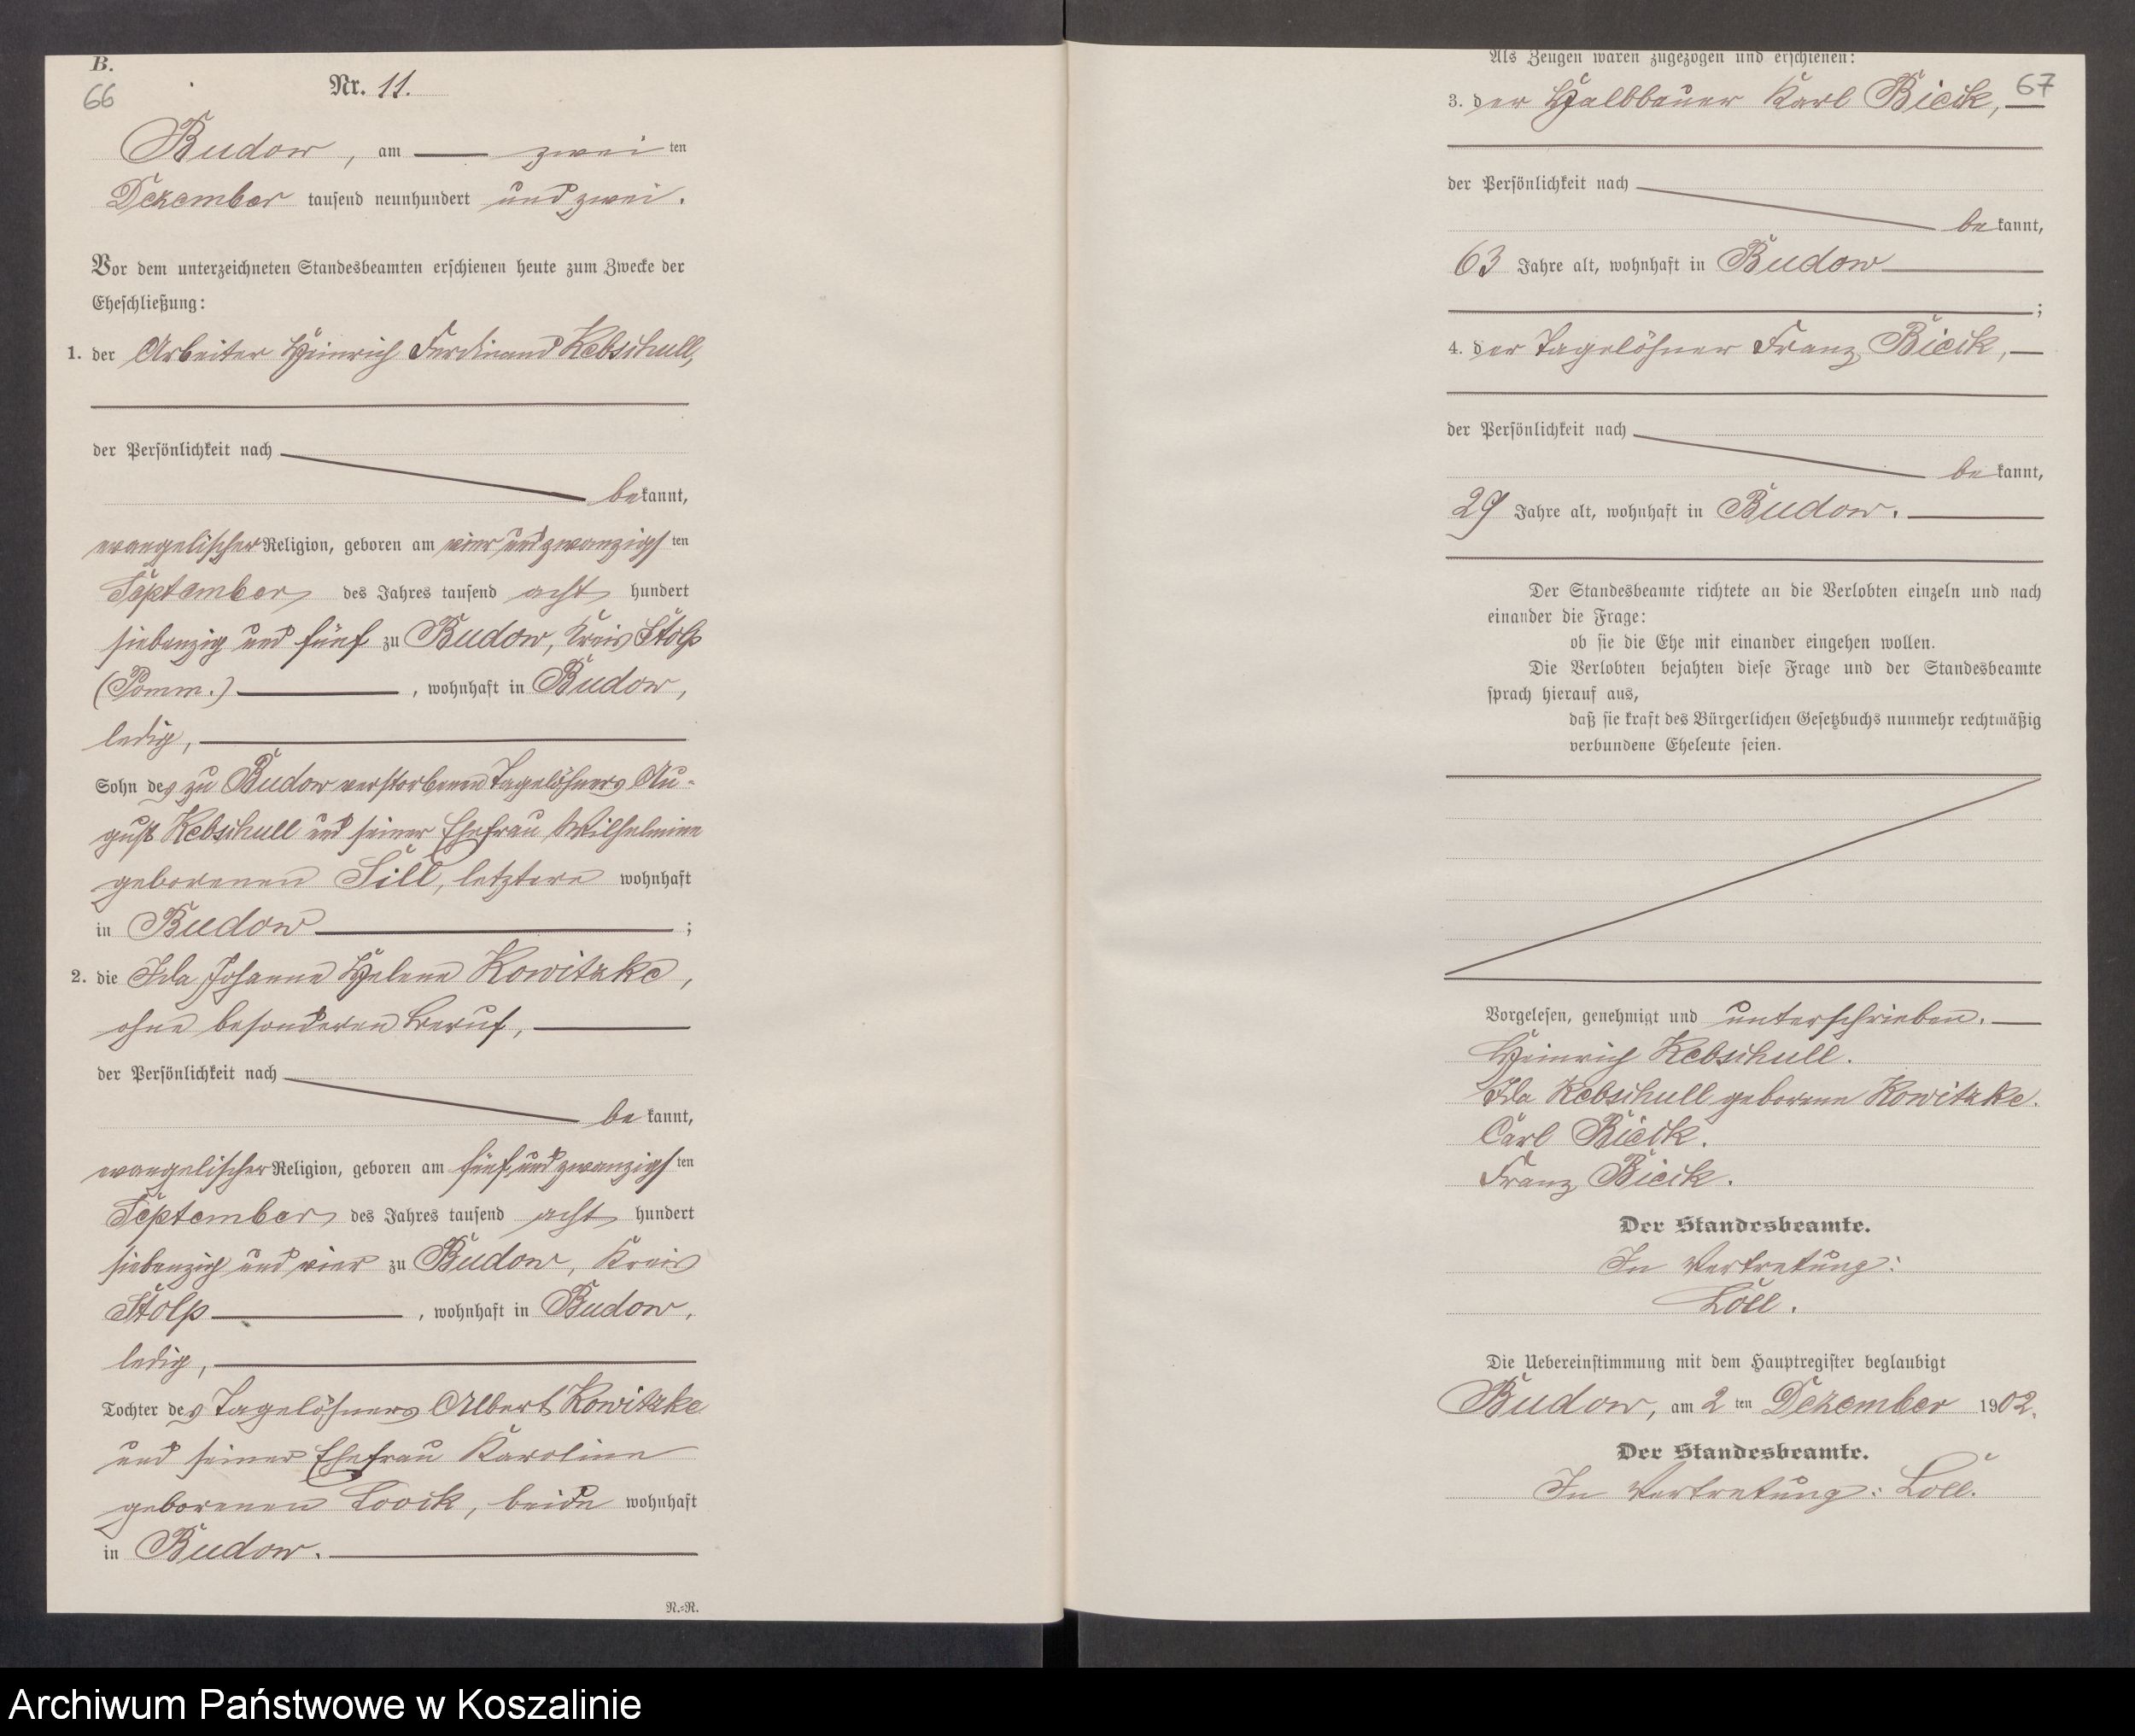 B.
66
Nr. 11.
Budow, am zweiten
Dezember tausend neunhundert und zwei.
Vor dem unterzeichneten Standesbeamten erschienen heute zum Zwecke der
Eheschließung:
1. der Arbeiter Heinrich Ferdinand Kebschull,
der Persönlichkeit nach
bekannt,
evangelischer Religion, geboren am vier und zwanzigsten
September des Jahres tausend acht hundert
siebenzig und fünf zu Budow, Kreis Stolp
(Pomm.) , wohnhaft in Budow,
ledig,
Sohn des zu Budow verstorbenen Tagelöhners Au-
gust Kebschull und seiner Ehefrau Wilhelmine
geborenen Sill, letztere wohnhaft
in Budow ;
2. die Ida Johanne Helene Kowitzke,
ohne besonderen Beruf,
der Persönlichkeit nach
bekannt,
evangelischer Religion, geboren am fünf und zwanzigsten
September des Jahres tausend acht hundert
siebenzig und vier zu Budow, Kreis
Stolp , wohnhaft in Budow,
ledig,
Tochter des Tagelöhners Albert Kowitzke
und seiner Ehefrau Karoline
geborenen Loock, beide wohnhaft
in Budow.
N.=N.
Als Zeugen waren zugezogen und erschienen:
67
3. der Halbbauer Karl Bicik,
der Persönlichkeit nach
bekannt,
63 Jahre alt, wohnhaft in Budow
;
4. der Tagelöhner Franz Bicik,
der Persönlichkeit nach
bekannt,
29 Jahre alt, wohnhaft in Budow.
Der Standesbeamte richtete an die Verlobten einzeln und nach
einander die Frage:
ob sie die Ehe mit einander eingehen wollen.
Die Verlobten bejahten diese Frage und der Standesbeamte
sprach hierauf aus,
daß sie kraft des Bürgerlichen Gesetzbuchs nunmehr rechtmäßig
verbundene Eheleute seien.
Vorgelesen, genehmigt und unterschrieben.
Heinrich Kebschull.
Ida Kebschull geborene Kowitzke.
Carl Bicik.
Franz Bicik.
Der Standesbeamte.
In Vertretung:
Löll.
Die Uebereinstimmung mit dem Hauptregister beglaubigt
Budow, am 2ten Dezember 1902.
Der Standesbeamte.
In Vertretung: Löll.
Archiwum Państwowe w Koszalinie